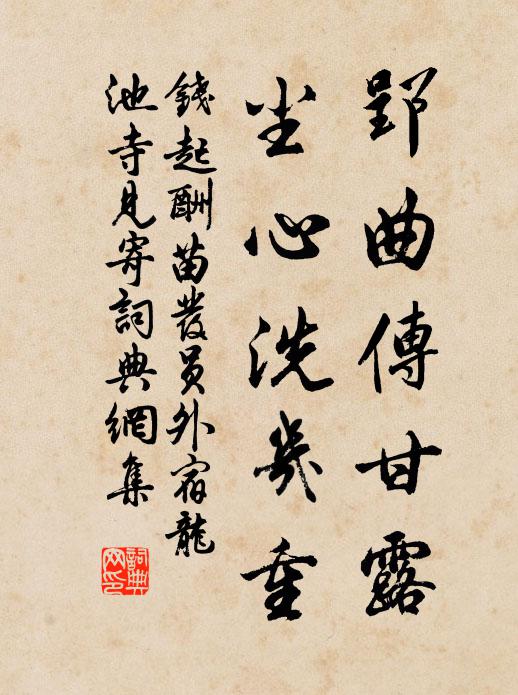 郢曲傳甘露
尘心洗幾重
錢起酬苗發員外宿龍
池寺見寄詞典網集
詞典网印